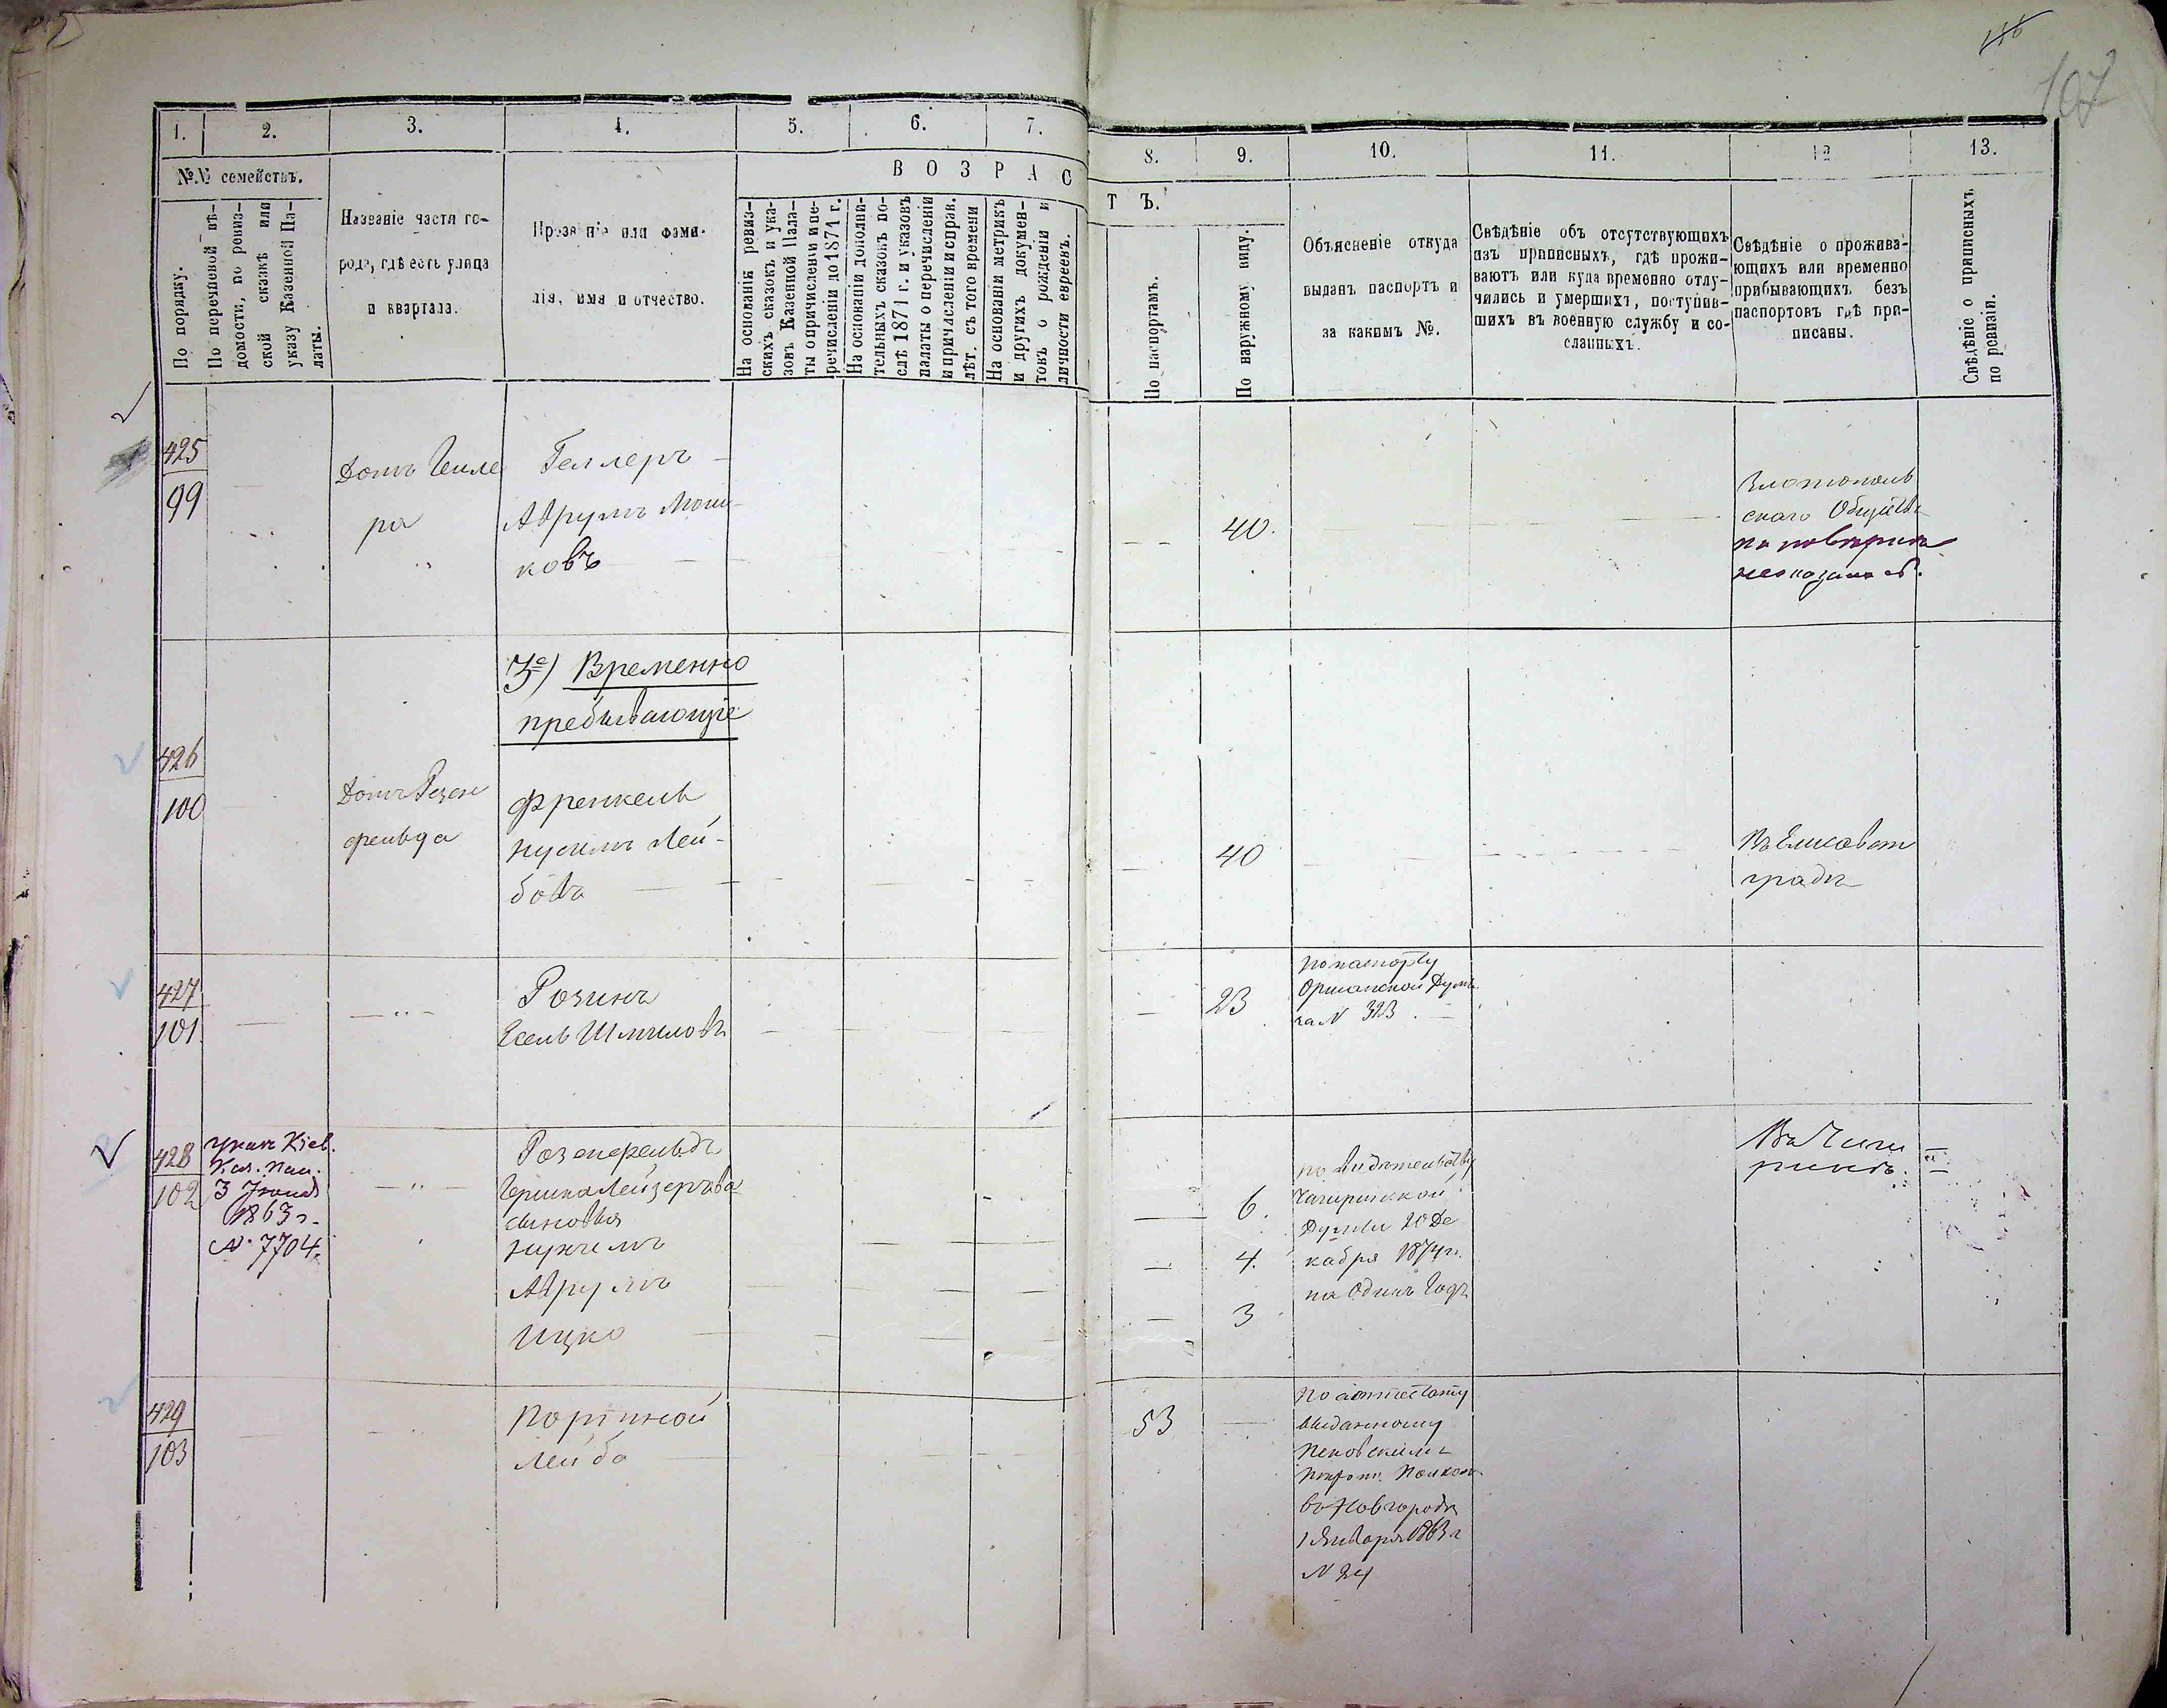 107
1. 2. 3. 4. 5. 6. 7. 8. 9. 10. 11. 12 13.
№№ семействъ.
По порядку.
По перечневой вѣ-
домости, по ревиз-
ской сказкѣ или
указу Казенной Па-
латы.
Названіе части го-
рода, гдѣ есть улица
и квартала.
Прозваніе или фами-
лія, имя и отчество.
ВОЗРАСТЪ.
На основаніи ревиз-
скихъ сказокъ и ука-
зовъ Казенной Пала-
ты о причисленіи и пе-
речисленіи до 1871 г.
На основаніи дополни-
тельныхъ сказокъ по-
слѣ 1871 г. и указовъ
палаты о перечисленіи
и причисленіи и справ.
лѣт. съ того времени
На основаніи метрикъ
и другихъ докумен-
товъ о рожденіи и
личности евреевъ.
По паспортамъ.
По наружному виду.
Объясненіе откуда
выданъ паспортъ и
за какимъ №.
Свѣдѣніе объ отсутствующихъ
изъ приписныхъ, гдѣ прожи-
ваютъ или куда временно отлу-
чились и умершихъ, поступив-
шихъ въ военную службу и со-
сланныхъ.
Свѣдѣніе о прожива-
ющихъ или временно
прибывающихъ безъ
паспортовъ гдѣ при-
писаны.
Свѣдѣніе о приписныхъ
по ревизіи.
425
99
Домъ Геле
ра
Геллеръ
Аврумъ Мош-
ковъ
40.
Златополь
скаго Общества
по повѣркѣ
не оказался.
3е) Временно
пребывающіе
426
100
Домъ Розен
фельда
Френкель
Нусимъ Лей-
бовъ
40
Въ Елисавет
градѣ
427
101
Розинъ
Есель Шмиловъ
23
по паспорту
Оршанской Думы
за N 323.
428
102
Указъ Кіев.
Каз. Пал.
3 Іюня
1863 г.
№ 7704.
Розенфельдъ
Гершка Лейзерова
сыновья
Нухимъ
Аврумъ
Ицко
6.
4.
3
по видѣтельству
Чигиринской
Думы 20 Де
кабря 1874 г.
на Одинъ Годъ
Въ Чиги
ринѣ.
429
103
Портной
Лейба
53
По аттестату
выданному
Псковскимъ
Полком.
въ Новгородѣ
1 Января 1863 г
N 24